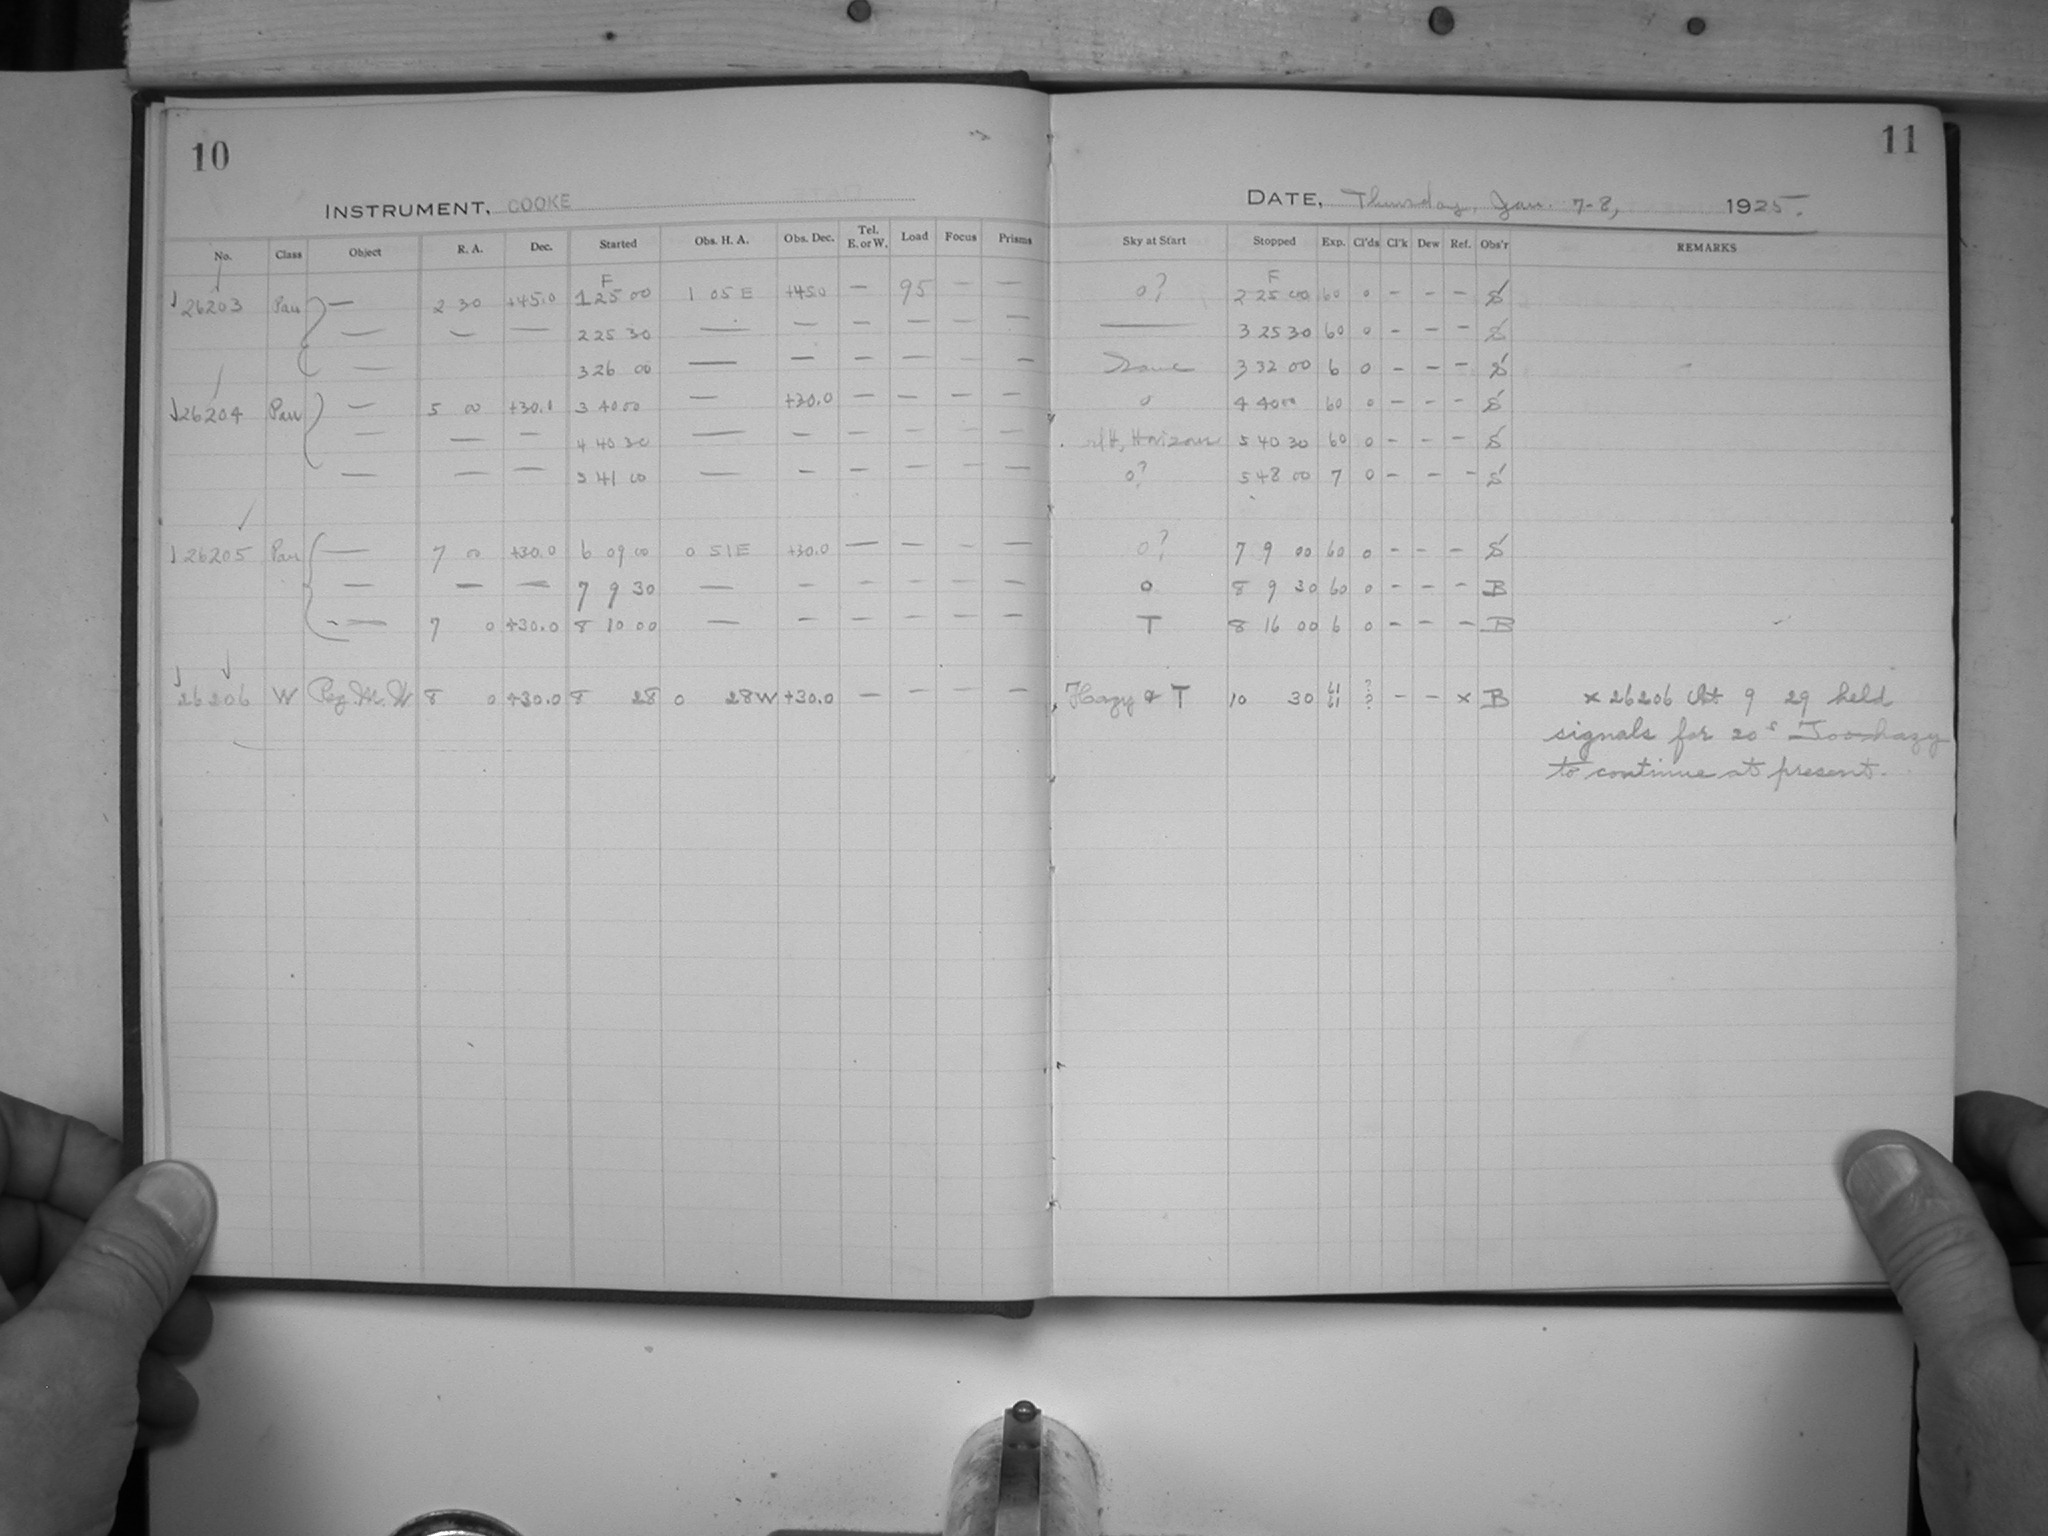 10
INSTRUMENT, COOKE
No. Class Object R. A. Dec. Started Obs. H. A. Obs. Dec. Tel. E. or W. Load Focus Prisms
F
26203 — 2 30 +45.0 1 25 00 1 05 E +45.0 — 95 — —
— — — 2 25 30 — — — — — —
— 3 26 00 — — — — — —
26204 — 5 00 3 40 00 — +30.0 — — — —
— — — 4 40 30 — — — — — —
— — — 5 41 00 — — — — — —
26205 — 7 0 +30.0 6 09 00 0 51 E +30.0 — — — —
— — — 7 9 30 — — — — — —
— 7 0 +30.0 8 10 00 — — — — — —
26206 W 8 0 +30.0 8 28 0 28 W +30.0 — — — —
11
DATE, Thursday, Jan. 7-8, 1925.
Sky at Start Stopped Exp. Cl'ds Cl'k Dew Ref. Obs'r REMARKS
F
0? 2 25 00 60 0 - - - S
— 3 25 30 60 0 - - - S
3 32 00 6 0 - - - S
0 4 40 00 60 0 - - - S
Horizon 5 40 30 60 0 - - - S
0? 5 48 00 7 0 - - - S
0? 7 9 00 60 0 - - - S
0 8 9 30 60 0 - - - B
T 8 16 00 6 0 - - - B
Hazy & T 10 30 61 61 ? ? - - x B x 26206 At 9 29 held
signals for 20s Too hazy
to continue at present.